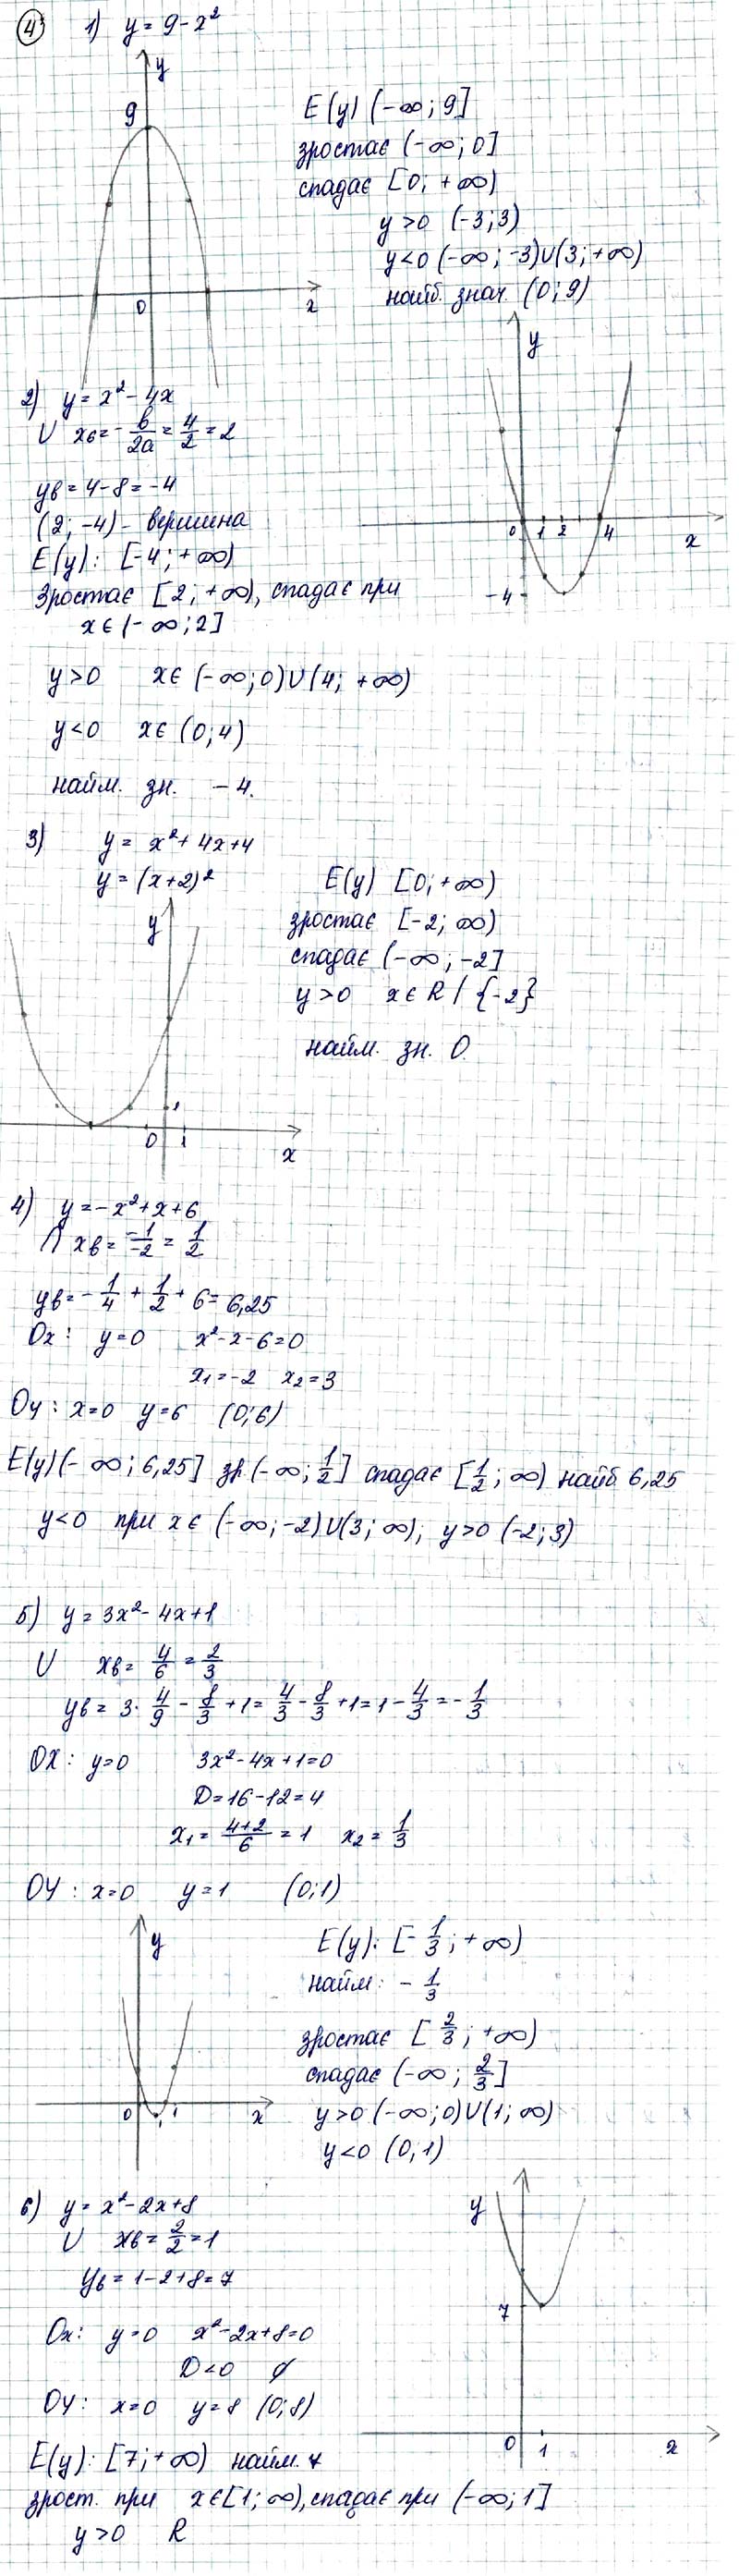 4) 1) y = 9 - x²
y
9
0
x
E(y) (-∞; 9]
зростає (-∞; 0]
спадає [0; +∞)
y>0 (-3; 3)
y<0 (-∞; -3)∪(3; +∞)
найб. знач. (0; 9)
2) y = x² - 4x
∪ xв = -b/2a = 4/2 = 2
yв = 4 - 8 = -4
(2; -4) - вершина
E(y): [-4; +∞)
Зростає [2; +∞), спадає при
x∈(-∞; 2]
y>0 x∈(-∞; 0)∪(4; +∞)
y<0 x∈(0; 4)
найм. зн. -4.
y
0 1 2 4
x
-4
3) y = x² + 4x + 4
y = (x+2)²
y
1
0 1
x
E(y) [0; +∞)
зростає [-2; ∞)
спадає (-∞; -2]
y>0 x∈R / {-2}
найм. зн. 0.
4) y = -x² + x + 6
∩ xв = -1/-2 = 1/2
yв = -1/4 + 1/2 + 6 = 6,25
Ox: y=0 x² - x - 6 = 0
x₁ = -2 x₂ = 3
Oy: x=0 y=6 (0; 6)
E(y) (-∞; 6,25] зр. (-∞; 1/2] спадає [1/2; ∞) найб 6,25
y<0 при x∈(-∞; -2)∪(3; ∞); y>0 (-2; 3)
5) y = 3x² - 4x + 1
∪ xв = 4/6 = 2/3
yв = 3·4/9 - 8/3 + 1 = 4/3 - 8/3 + 1 = 1 - 4/3 = -1/3
OX: y=0 3x² - 4x + 1 = 0
D = 16 - 12 = 4
x₁ = (4+2)/6 = 1 x₂ = 1/3
OY: x=0 y=1 (0; 1)
y
0 1
x
E(y): [-1/3; +∞)
найм: -1/3
зростає [2/3; +∞)
спадає (-∞; 2/3]
y>0 (-∞; 0)∪(1; ∞)
y<0 (0; 1)
6) y = x² - 2x + 8
∪ xв = 2/2 = 1
yв = 1 - 2 + 8 = 7
Ox: y=0 x² - 2x + 8 = 0
D<0 ∅
OY: x=0 y=8 (0; 8)
E(y): [7; +∞) найм. 7
зрост. при x∈[1; ∞), спадає при (-∞; 1]
y>0 R
y
7
0 1
x